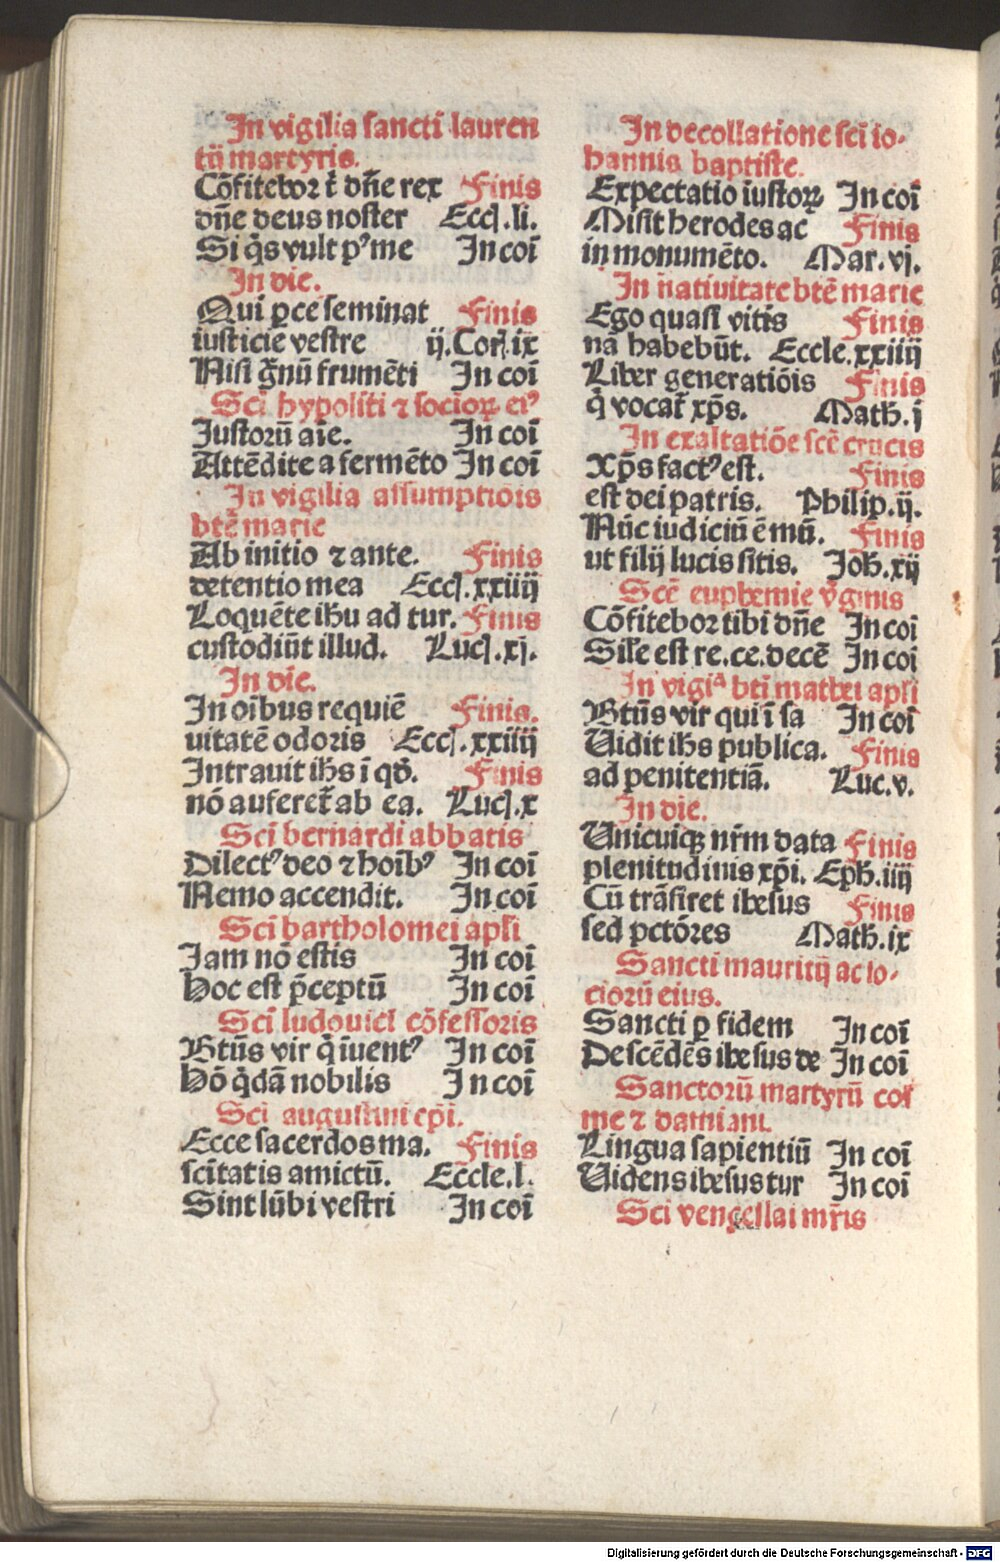 In vigilia sancti lauren
tii martyris.
Cōfitebor t̄ dn̄e rex Finis
dn̄e deus noster Eccl̄.li.
Si q̄s vult pꝰ me In coī
In die.
Qui ꝑce seminat Finis
iusticie vestre ij.Cor̄.ix
Nisi ḡnū frumēti In coī
Sci hypoliti ⁊ socioꝝ eiꝰ
Justorū aīe. In coī
Attēdite a fermēto In coī
In vigilia assumptiōis
btē marie
Ab initio ⁊ ante. Finis
detentio mea Eccl̄.xxiiij
Loquēte ihū ad tur. Finis
custodiūt illud. Luc̄.xj.
In die.
In oībus requiē Finis.
uitatē odoris Eccl̄.xxiiij
Intrauit ihs ī qd̄. Finis
nō auferet̄ ab ea. Luc̄.x
Sci bernardi abbatis
Dilectꝰ deo ⁊ hoībꝰ In coī
Nemo accendit. In coī
Sci bartholomei apl̄i
Jam nō estis In coī
Hoc est p̄ceptū In coī
Sci ludouici cōfessoris
Btūs vir q̄ īuentꝰ In coī
Hō q̄dā nobilis In coī
Sci augustini ep̄i.
Ecce sacerdos ma. Finis
sc̄itatis amictū. Eccle.l.
Sint lūbi vestri In coī
In decollatione sci io-
hannis baptiste.
Expectatio iustoꝝ In coī
Misit herodes ac Finis
in monumēto. Mar.vj.
In natiuitate btē marie
Ego quasi vitis Finis
nā habebūt. Eccle.xxiiij
Liber generatiōis Finis
q̄ vocat̄ xp̄s. Math.j
In exaltatiōe scē crucis
Xp̄s factꝰ est. Finis
est dei patris. Philip.ij.
Nūc iudiciū ē mū. Finis
ut filij lucis sitis. Joh.xij
Scē euphemie v̄ginis
Cōfitebor tibi dn̄e In coi
Sil̄e est re.ce.decē In coi
In vigiᵃ bti mathei apl̄i
Btūs vir qui ī sa In coī
Uidit ihs publica. Finis
ad penitentiā. Luc.v.
In die.
Unicuiqꝫ nr̄m data Finis
plenitudinis xp̄i. Eph.iiij
Cū trāsiret ihesus Finis
sed pctōres Math.ix
Sancti mauritij ac so-
ciorū eius.
Sancti ꝑ fidem In coī
Descēdēs ihesus de In coī
Sanctorū martyrū cos
me ⁊ damiani.
Lingua sapientiū In coī
Uidens ihesus tur In coī
Sci vencellai mr̄is
Digitalisierung gefördert durch die Deutsche Forschungsgemeinschaft - DFG